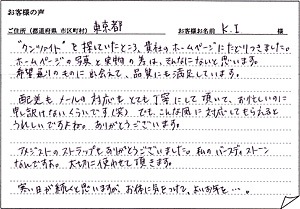 お客様の声
ご住所（都道府県 市区町村） 東京都 お客様お名前 K.I 様
"クンツァイト"を探していたところ、貴社のホームページにたどりつきました。
ホームページの写真と実物の差は、そんなにないと思います。
希望通りのものに出会えて、品質にも満足しています。
配送も、メールの対応もとても丁寧にして頂いて、お忙しいのに
申し訳けないくらいです(笑) でも、こんな風に対応してもらえると
うれしいですよね。ありがとうございます。
アメジストのストラップもありがとうございました。私のバースディストーン
なんですよ。大切に使わせて頂きます。
寒い日が続くと思いますが、お体に気をつけて、よいお年を…。